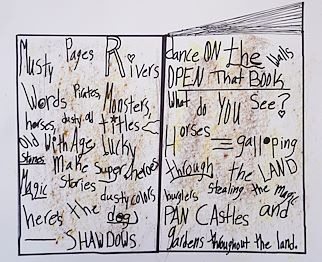 Musty Pages Rivers
Words Pirates, Monsters,
horses, dusty old titles
Old With Age Lucky
Stones make Superheroes
Magic Stories dusty cowls
heres the dog
SHAWDOWS
dance ON the Walls
OPEN That BOOK
What do YOU See?
Horses = galloping
through the LAND
burglers stealing the magic
PAN CAStles and
gardens throughout the land.